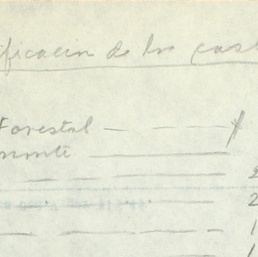 ificacion de los cast
Forestal — — $
monte
2
2
1
1